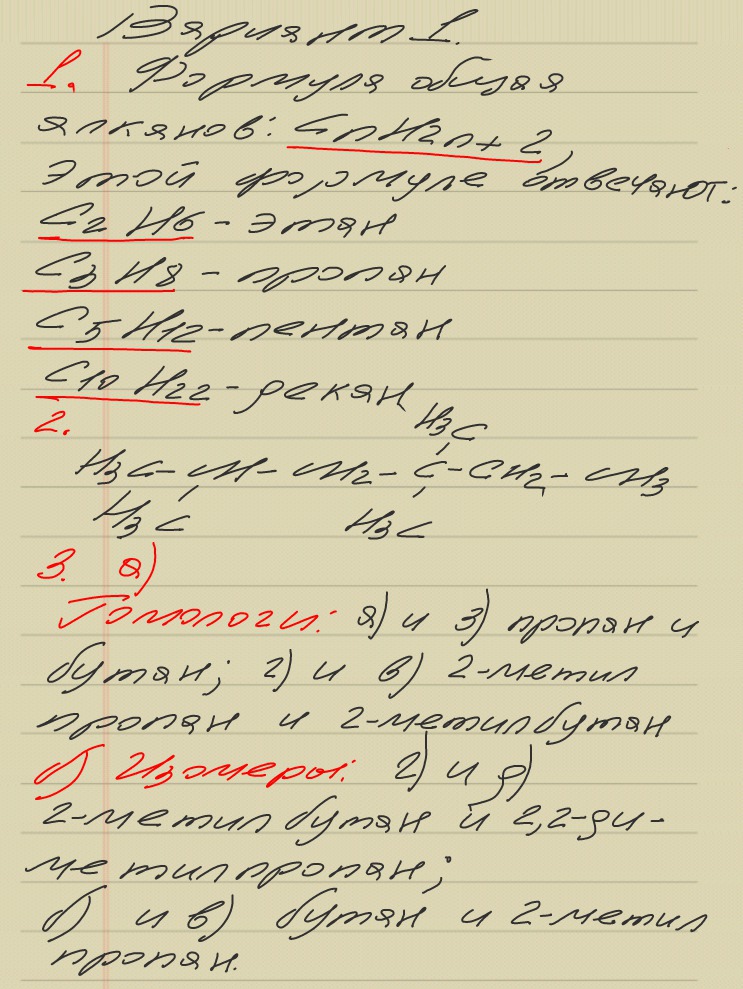 Вариянт 1.
1. Формуля общая
алканов: CnH2n+2,
этой формуле отвечают:
C2H6 - этан
C3H8 - пропан
C5H12 - пентан
C10H22 - декан
2.
H3C
H3C-CH-CH2-C-CH2-CH3
H3C H3C
3. а)
Гомологи: а) и з) пропан и
бутан; г) и в) 2-метил
пропан и 2-метилбутан
б) Изомеры: г) и д)
2-метилбутан и 2,2-ди-
метилпропан;
б) и в) бутан и 2-метил
пропан.